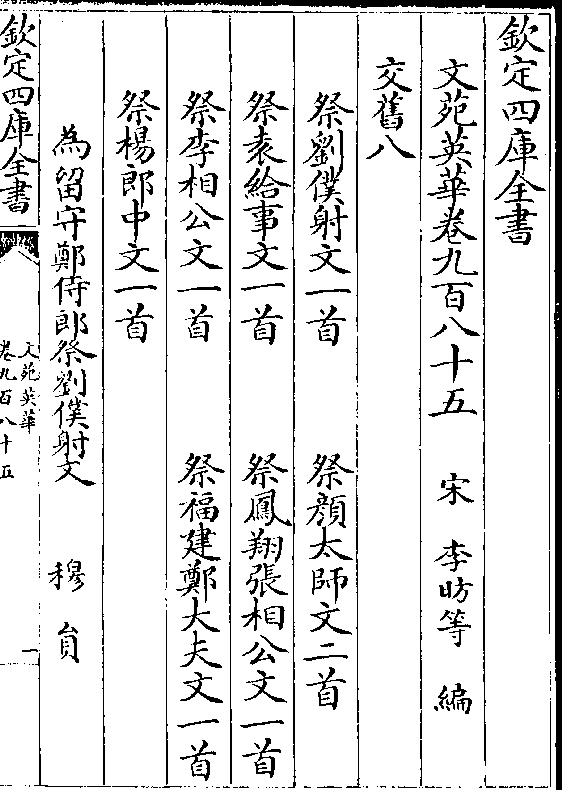 欽定四庫全書
文苑英華卷九百八十五　宋　李昉等　編
交舊八
祭劉僕射文一首　祭顔太師文二首
祭袁給事文一首　祭鳳翔張相公文一首
祭李相公文一首　祭福建鄭大夫文一首
祭楊郎中文一首
為留守鄭侍郎祭劉僕射文　穆員
欽定四庫全書
文苑英華
卷九百八十五
一